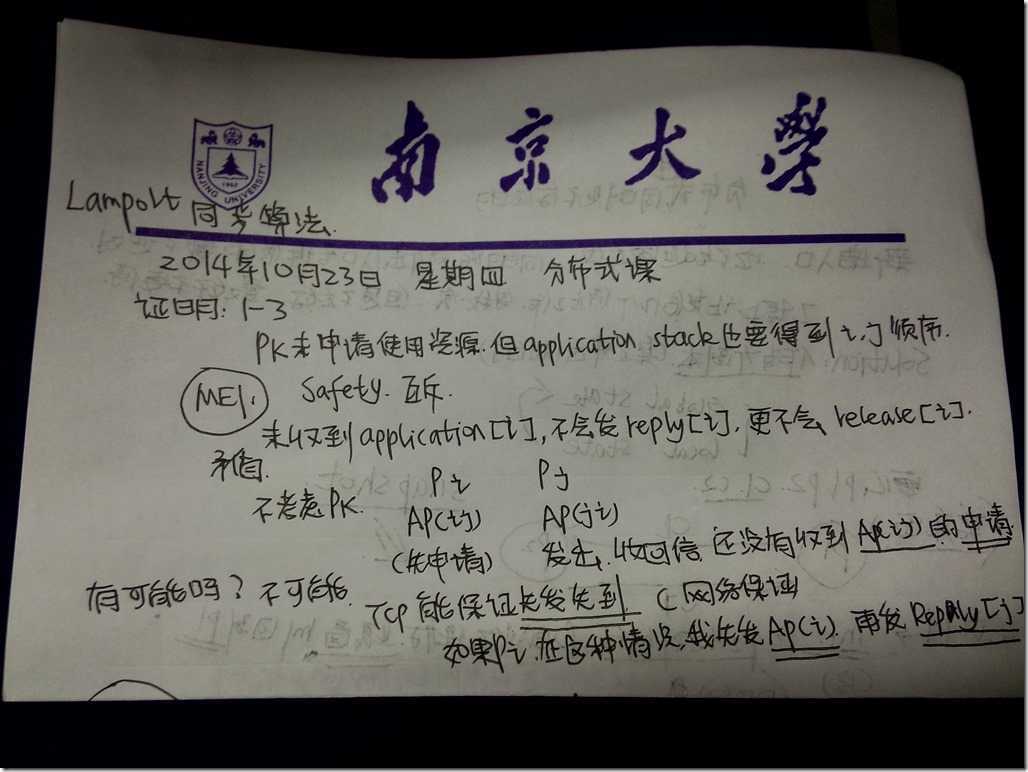 南京大學
NANJING UNIVERSITY
1902
Lamport 同步算法.
2014年10月23日 星期四 分布式课
证明: 1-3
PK未申请使用资源.但application stack也要得到i,j顺序.
ME1. Safety. 互斥.
未收到application[i], 不会发reply[i], 更不会release[i].
矛盾.
Pi Pj
不考虑PK. AP(ij) AP(ji)
(先申请) 发出, 收回信 还没有收到Ap(ij)的申请.
有可能吗? 不可能. TCP能保证先发先到 (网络保证
如果Pi 在这种情况,我先发Ap(i). 再发Reply[j]